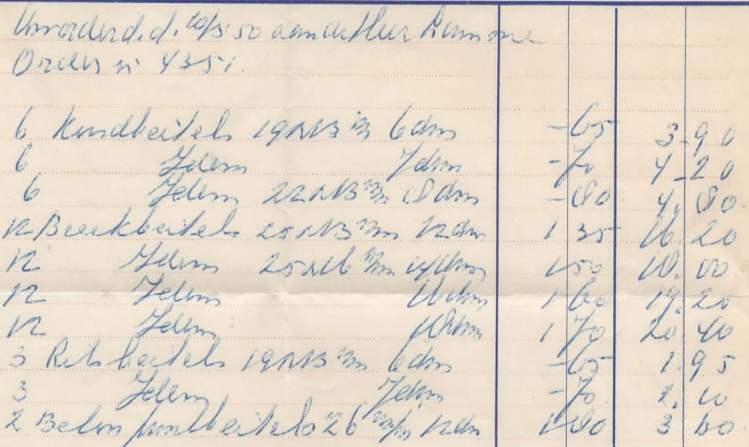 d.d. 10/3 '50 aan de Heer
Order n: 4351.
6 Koudbeitels 19x13 m/m 6dm -65 3-90
6 Idem 7dm -70 4-20
6 Idem 22x13 m/m 8dm -80 4.80
12 Breekbeitels 25x13 m/m 12dm 1 35 16.20
12 Idem 25x16 m/m 14dm 1 50 18.00
12 Idem 16dm 1 60 19.20
12 Idem 18dm 1 70 20.40
3 Ritsbeitels 19x13 m/m 6dm -65 1.95
3 Idem 7dm -70 2.10
2 Beton puntbeitels 26 m/m 12dm 1 80 3 60